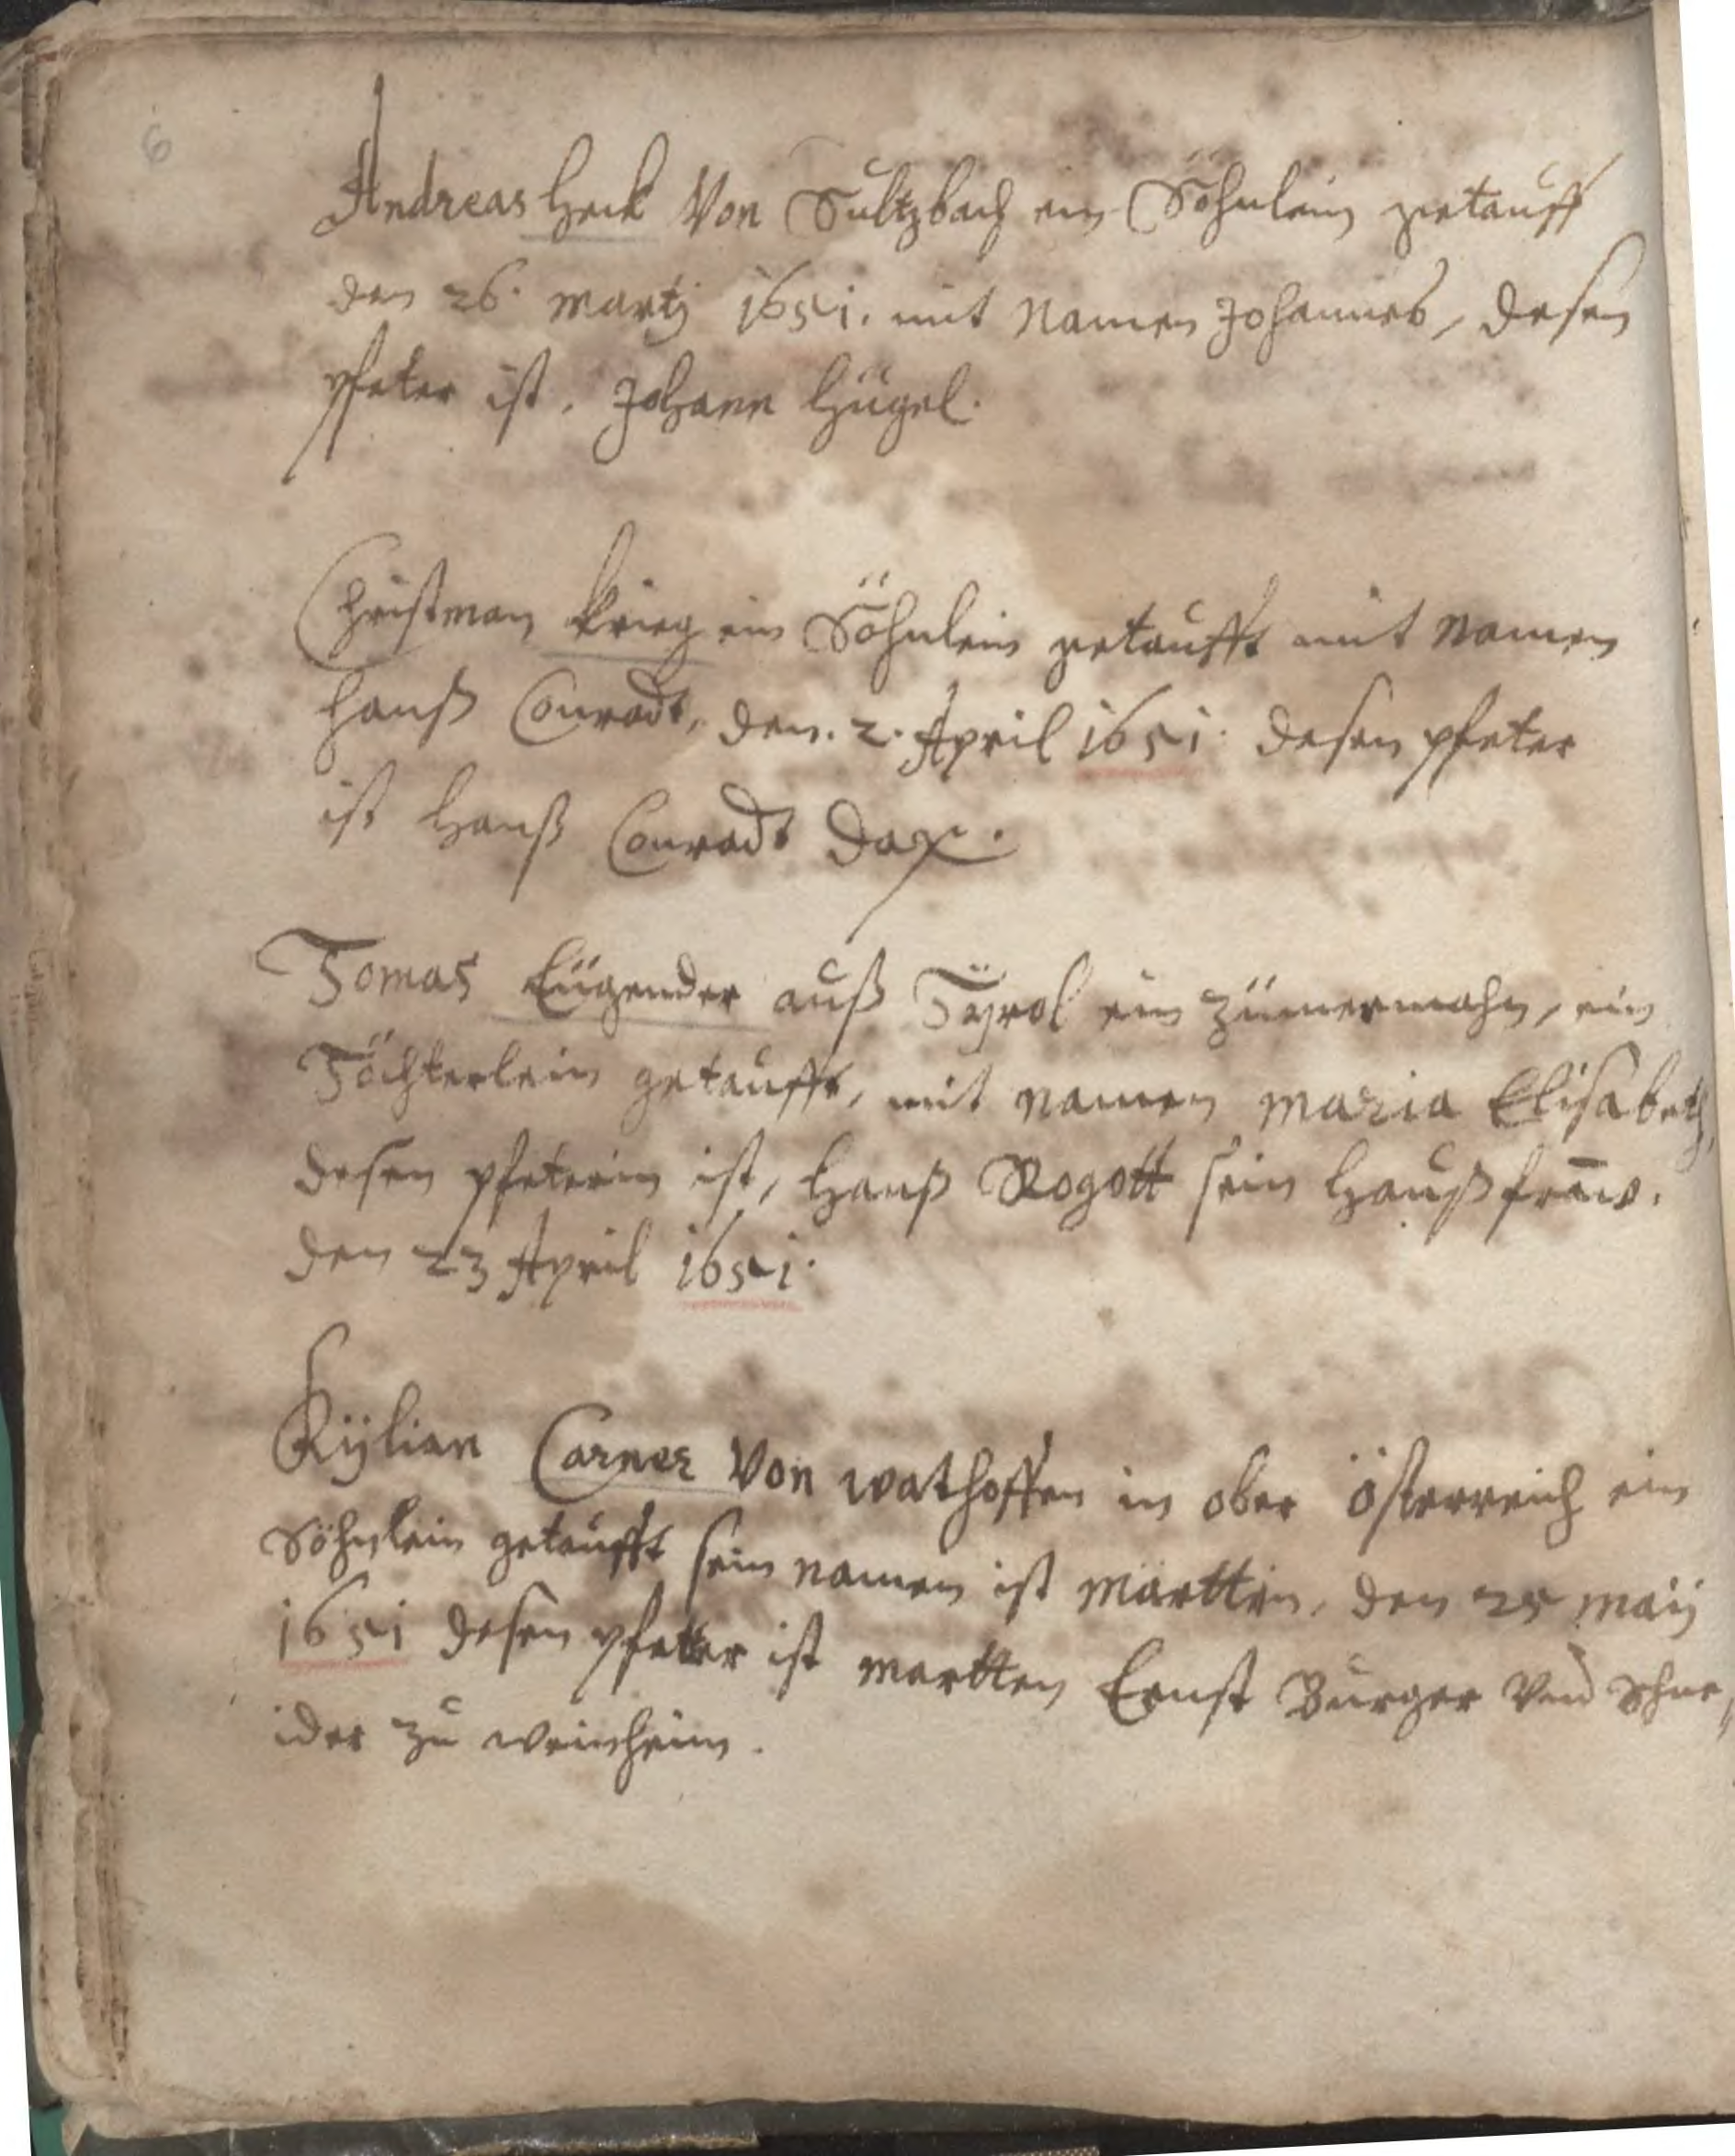 6
Andreas Heck Von Sultzbach ein Söhnlein getauff
den 26. Martij 1651. mit Namen Johannes, desen
pfeter ist. Johann Hügel.
Christman Krieg ein Söhnlein getaufft mit Namen
Hanß Conradt, den. 2. April 1651. desen pfeter
ist Hanß Conradt Dax.
Tomas Lügender auß Tÿrol ein zümermahn, ein
Töchterlein getaufft, mit namen Maria Elisabeth,
desen pfeterin ist, Hanß Rogott sein Haußfraw.
den 23 April 1651.
Kÿlian Carner Von wathoffen in ober österreich ein
Söhnlein getaufft sein namen ist Martten, den 25 Maij
1651 desen pfetter ist Martten Ernst Burger Vnd Schne,
ider zu weinheim.